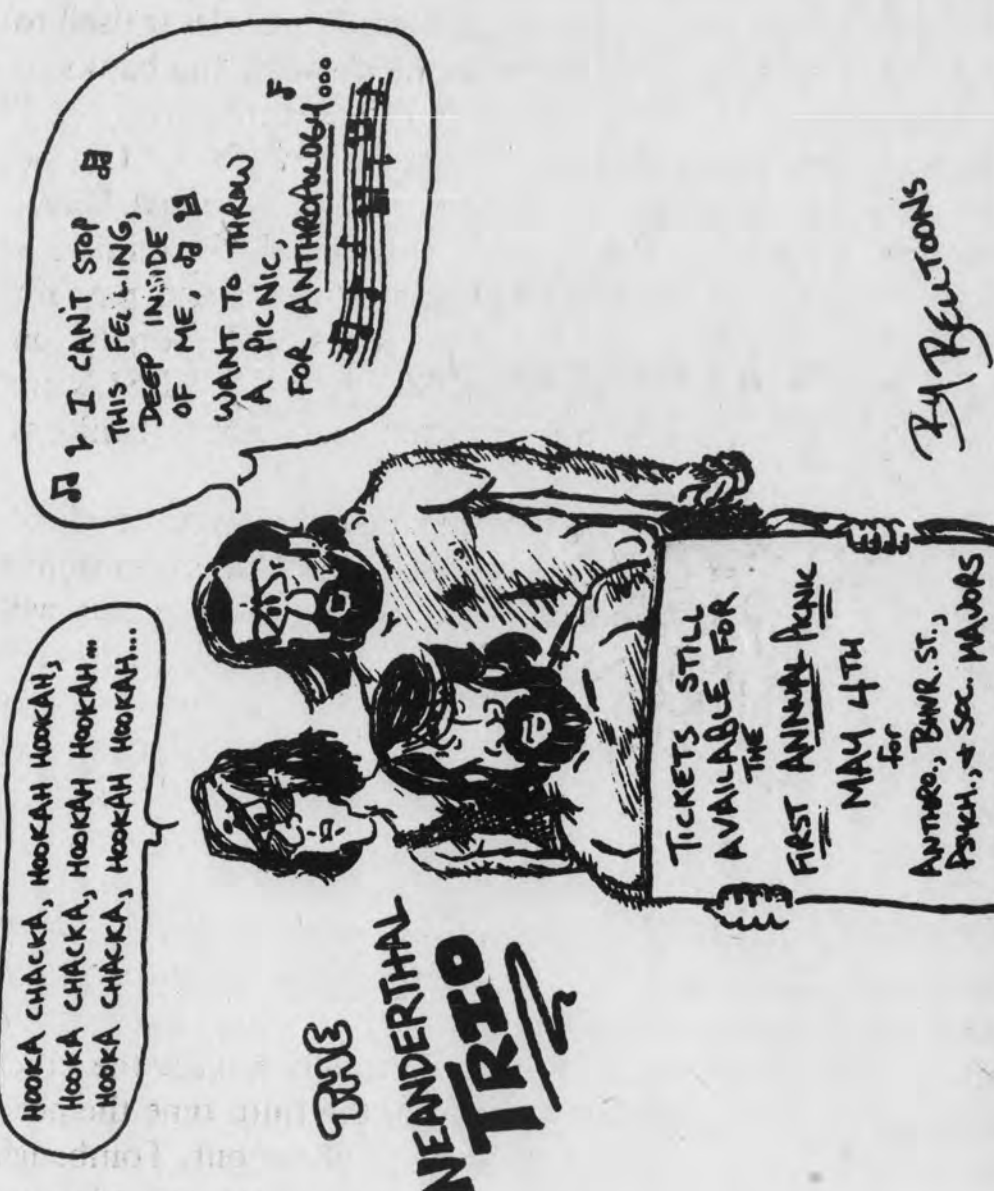 HOOKA CHACKA, HOOKAH HOOKAH,
HOOKA CHACKA, HOOKAH HOOKAH...
HOOKA CHACKA, HOOKAH HOOKAH...
I CAN'T STOP
THIS FEELING,
DEEP INSIDE
OF ME
WANT TO THROW
A PICNIC,
FOR ANTHROPOLOGY...
THE
NEANDERTHAL
TRIO
TICKETS STILL
AVAILABLE FOR
THE
FIRST ANNUAL PICNIC
MAY 4TH
for
ANTHRO., BHVR. ST.,
PSYCH., + SOC. MAJORS
By BELLTOONS